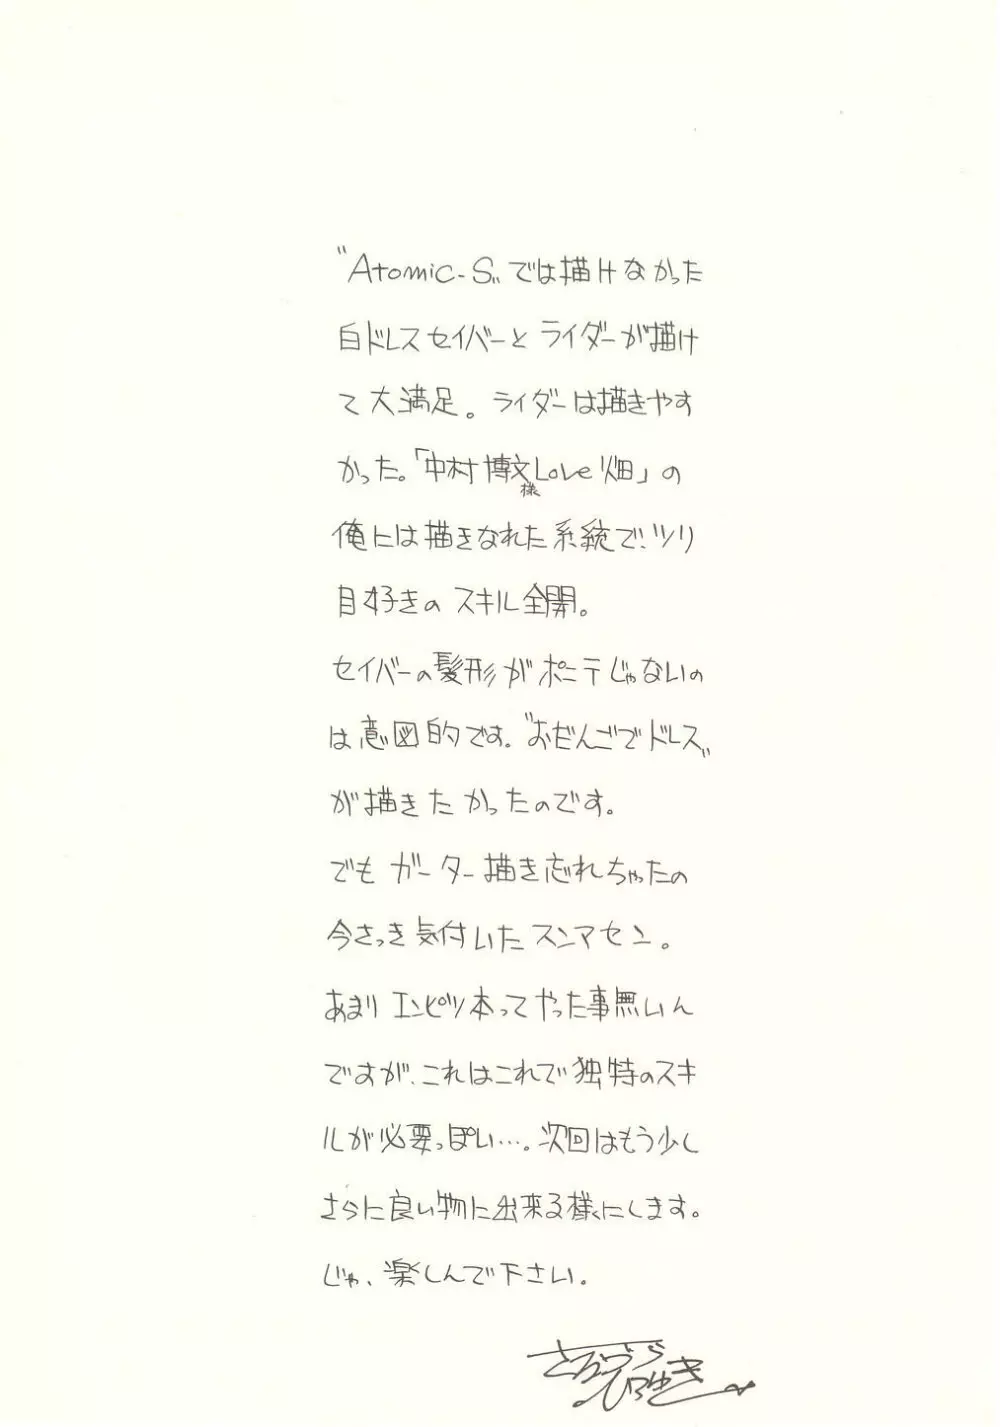 "Atomic-S"では描けなかった
白ドレスセイバーとライダーが描け
て大満足。ライダーは描きやす
かった。「中村博文様Love畑」の
俺には描きなれた系統で、ツリ
目好きのスキル全開。
セイバーの髪形がポニテじゃないの
は意図的です。"おだんごでドレス"
が描きたかったのです。
でもガーター描き忘れちゃったの
今さっき気付いたスンマセン。
あまりエンピツ本ってやった事無いん
ですが、これはこれで独特のスキ
ルが必要っぽい…。次回はもう少し
さらに良い物に出来る様にします。
じゃ、楽しんで下さい。